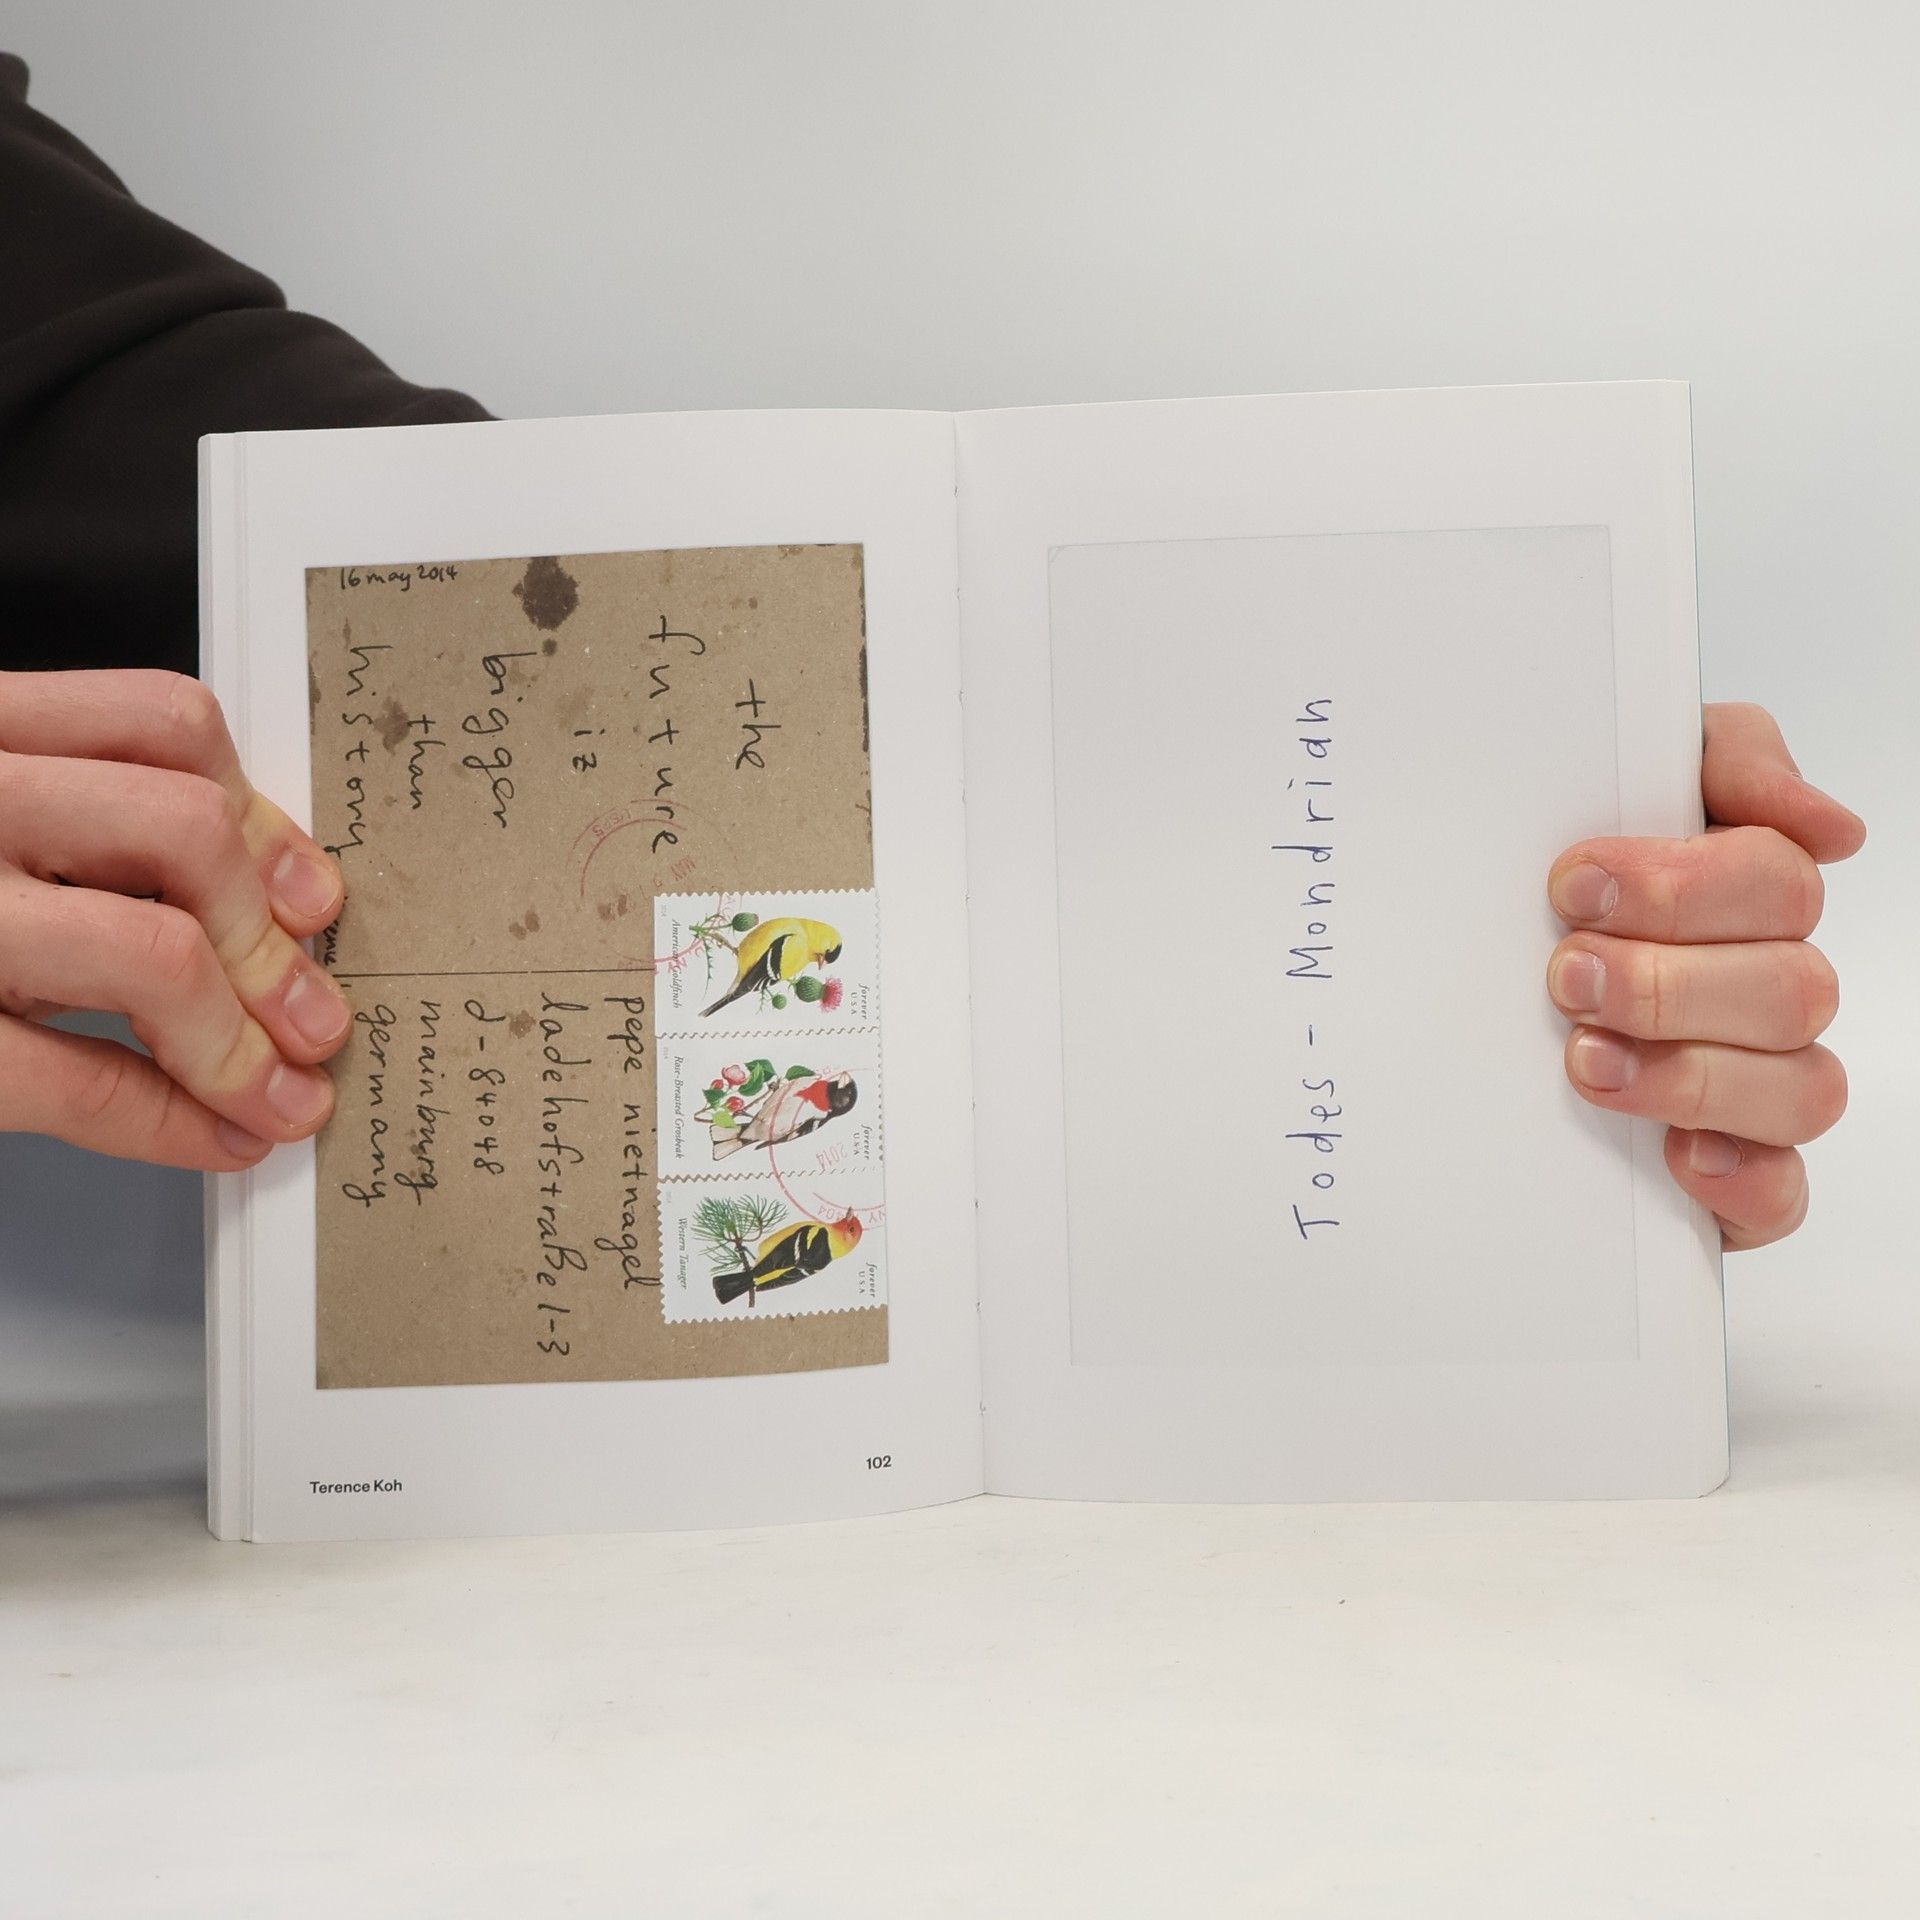 16 may 2014
the
future
iz
bigger
than
history
pepe nietnagel
ladehofstraße 1-3
d-84048
mainburg
germany
American Goldfinch
forever
USA
2014
Rose-Breasted Grosbeak
forever
USA
2014
Western Tanager
forever
USA
2014
USPS
MAY 21
2014
NY
Terence Koh
102
Todes - Mondrian